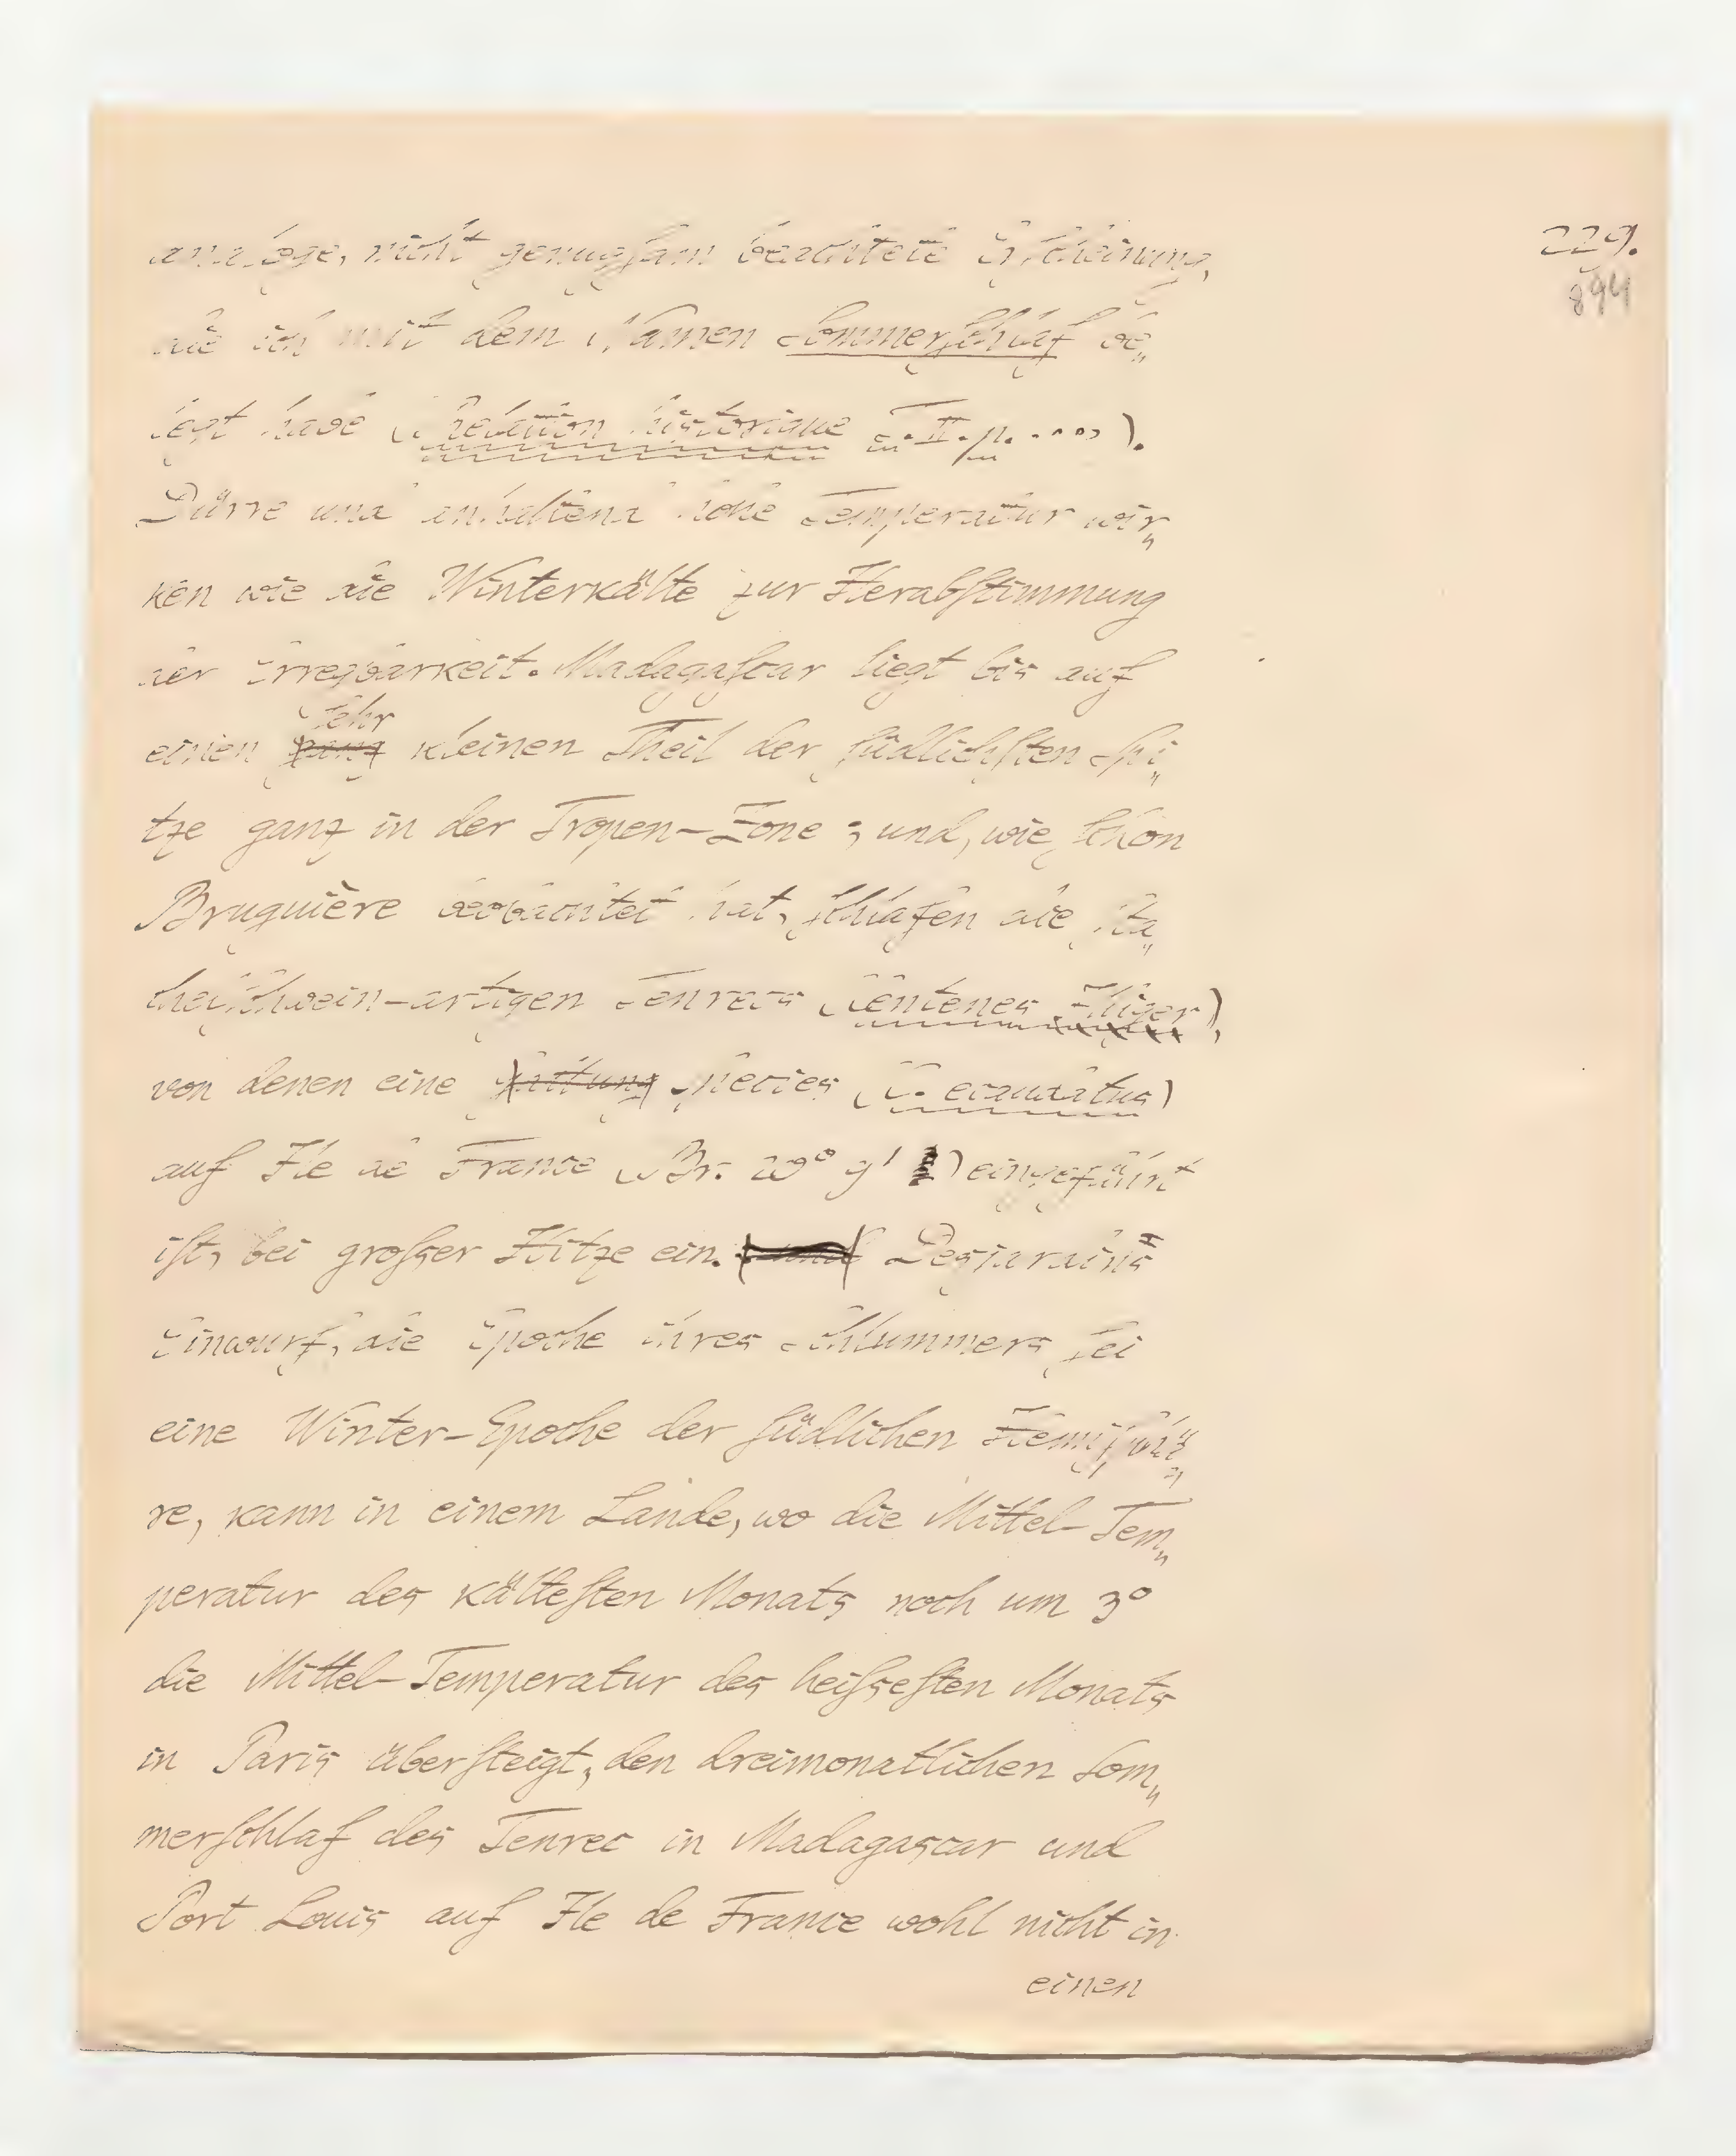 229.
894
analoge, nicht genugsam beachtete Erscheinung,
die ich mit dem Namen Sommerschlaf be„
legt habe (Relation historique T. II. p. ....).
Dürre und anhaltend hohe Temperatur wir„
ken wie die Winterkälte zur Herabstimmung
der Erregbarkeit. Madagascar liegt bis auf
sehr
einen ganz kleinen Theil der südlichsten Spi„
tze ganz in der Tropen-Zone; und, wie schon
Bruguière beobachtet hat, schlafen die sta„
chelschwein-artigen Tenrecs (Centenes Illiger),
von denen eine Gattung Species (C. ecaudatus)
auf Ile de France (Br. 20° 9') eingeführt
ist, bei großer Hitze ein. Desjardins
Einwurf, die Epoche ihres Schlummers sei
eine Winter-Epoche der südlichen Hemisphä„
re, kann in einem Lande, wo die Mittel-Tem„
peratur des kältesten Monats noch um 3°
die Mittel-Temperatur des heißesten Monats
in Paris übersteigt, den dreimonatlichen Som„
merschlaf des Tenrec in Madagascar und
Port Louis auf Ile de France wohl nicht in
einen